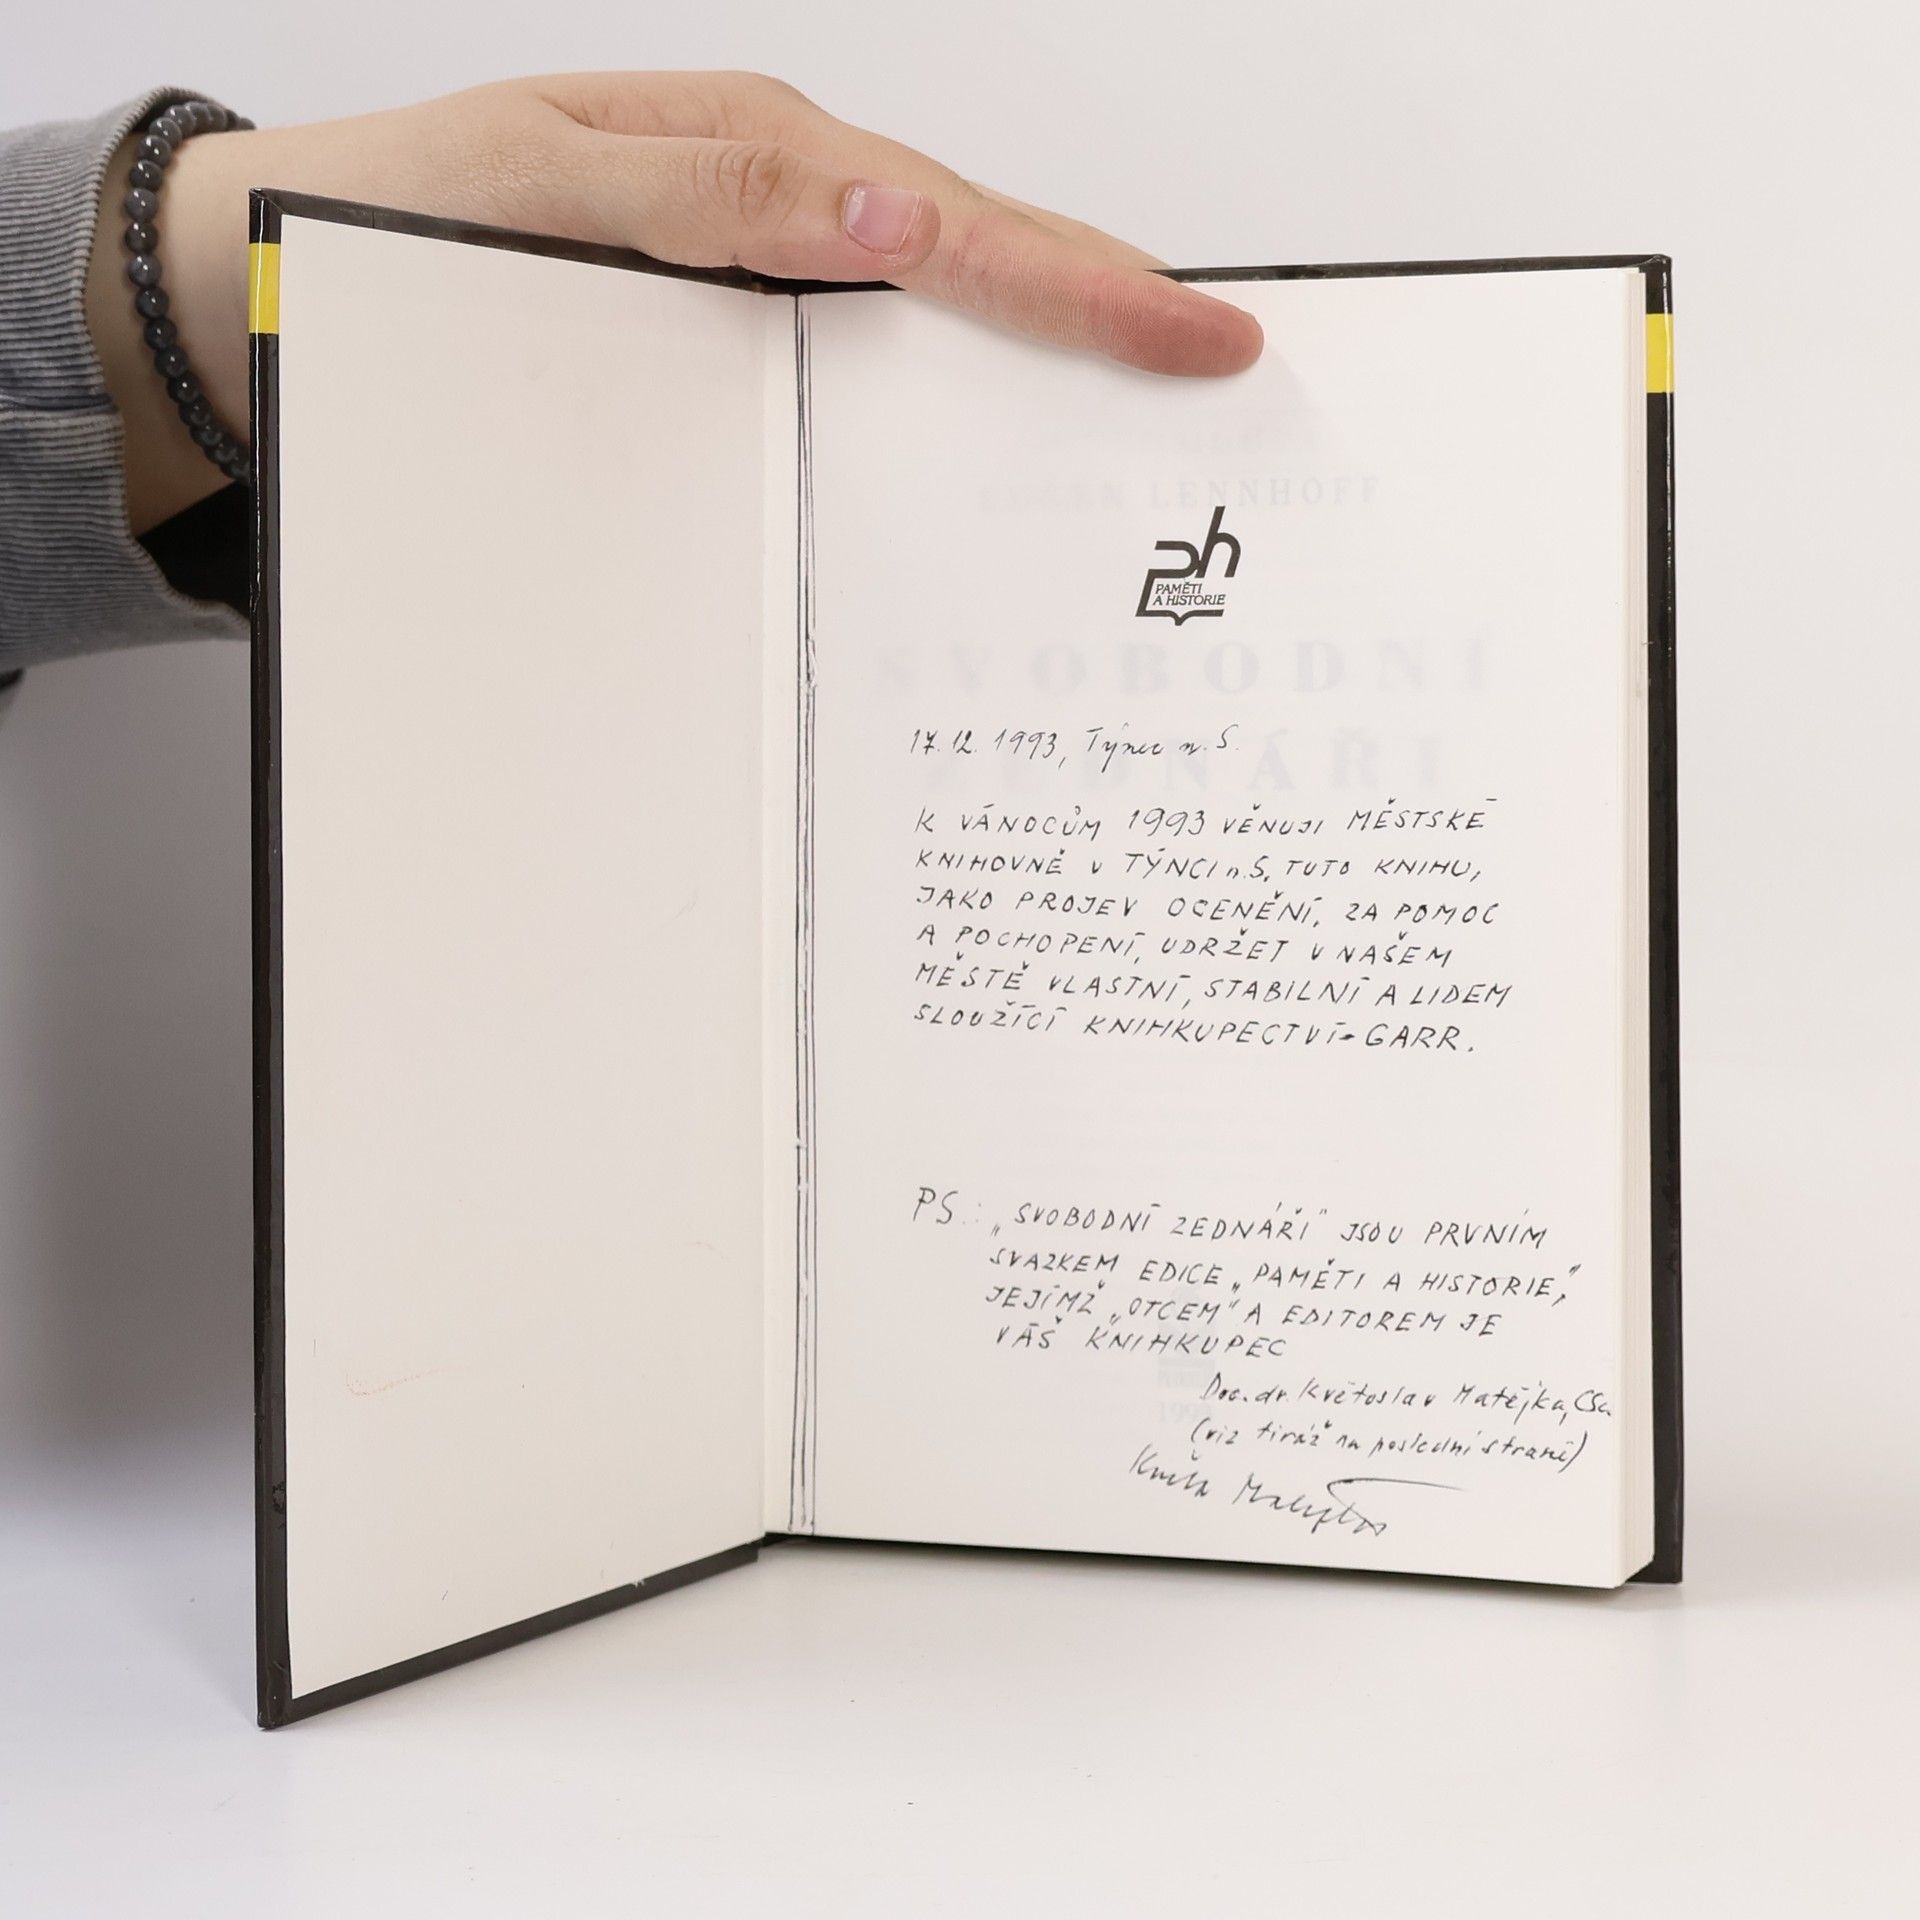 LENNHOFF
ph
PAMĚTI
A HISTORIE
SVOBODNÍ
ZEDNÁŘI
17. 12. 1993, Týnec n. S.
K VÁNOCŮM 1993 VĚNUJI MĚSTSKÉ
KNIHOVNĚ V TÝNCI n. S. TUTO KNIHU,
JAKO PROJEV OCENĚNÍ, ZA POMOC
A POCHOPENÍ, UDRŽET V NAŠEM
MĚSTĚ VLASTNÍ, STABILNÍ A LIDEM
SLOUŽÍCÍ KNIHKUPECTVÍ - GARR.
PS: „SVOBODNÍ ZEDNÁŘI" JSOU PRVNÍM
SVAZKEM EDICE „PAMĚTI A HISTORIE,"
JEJÍMŽ „OTCEM" A EDITOREM JE
VÁŠ KNIHKUPEC
Doc. dr. Květoslav Matějka, CSc.
(viz tiráž na poslední straně)